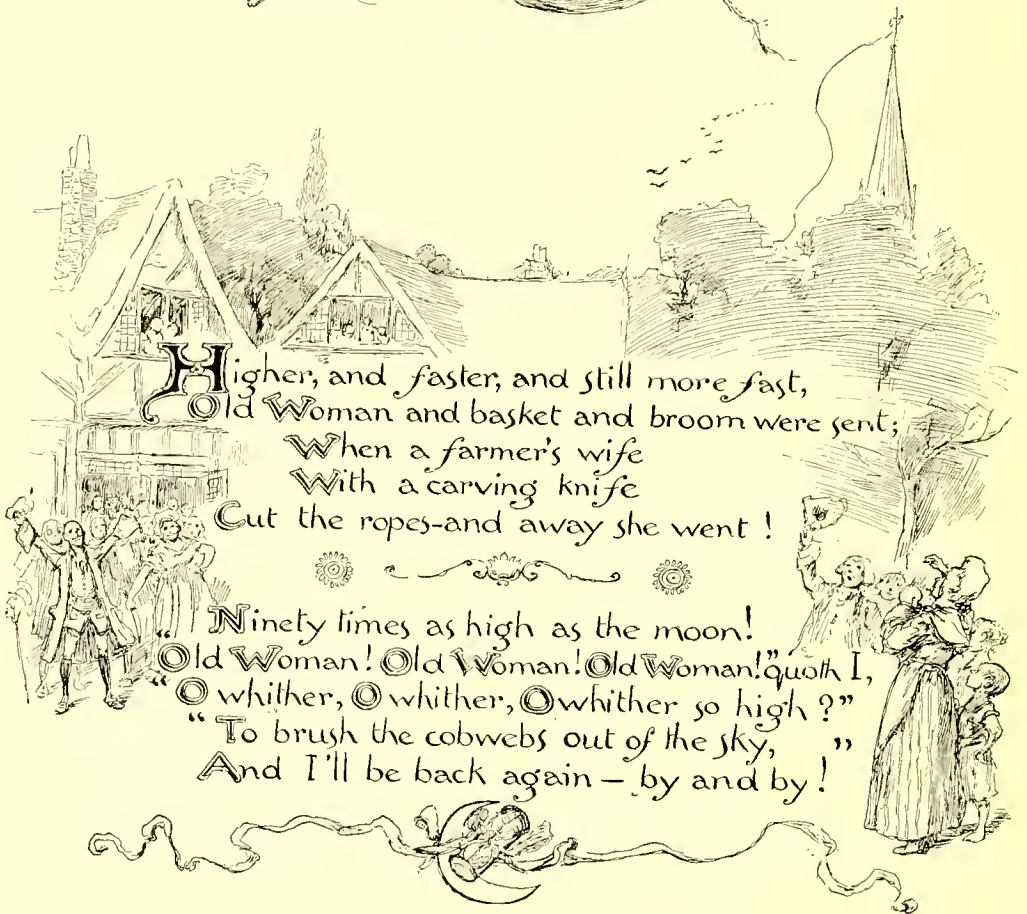 Higher, and faster, and still more fast,
Old Woman and basket and broom were sent;
When a farmer's wife
With a carving knife
Cut the ropes-and away she went!
Ninety times as high as the moon!
"Old Woman! Old Woman! Old Woman!" quoth I,
"O whither, O whither, O whither so high?"
"To brush the cobwebs out of the sky,
And I'll be back again – by and by!"